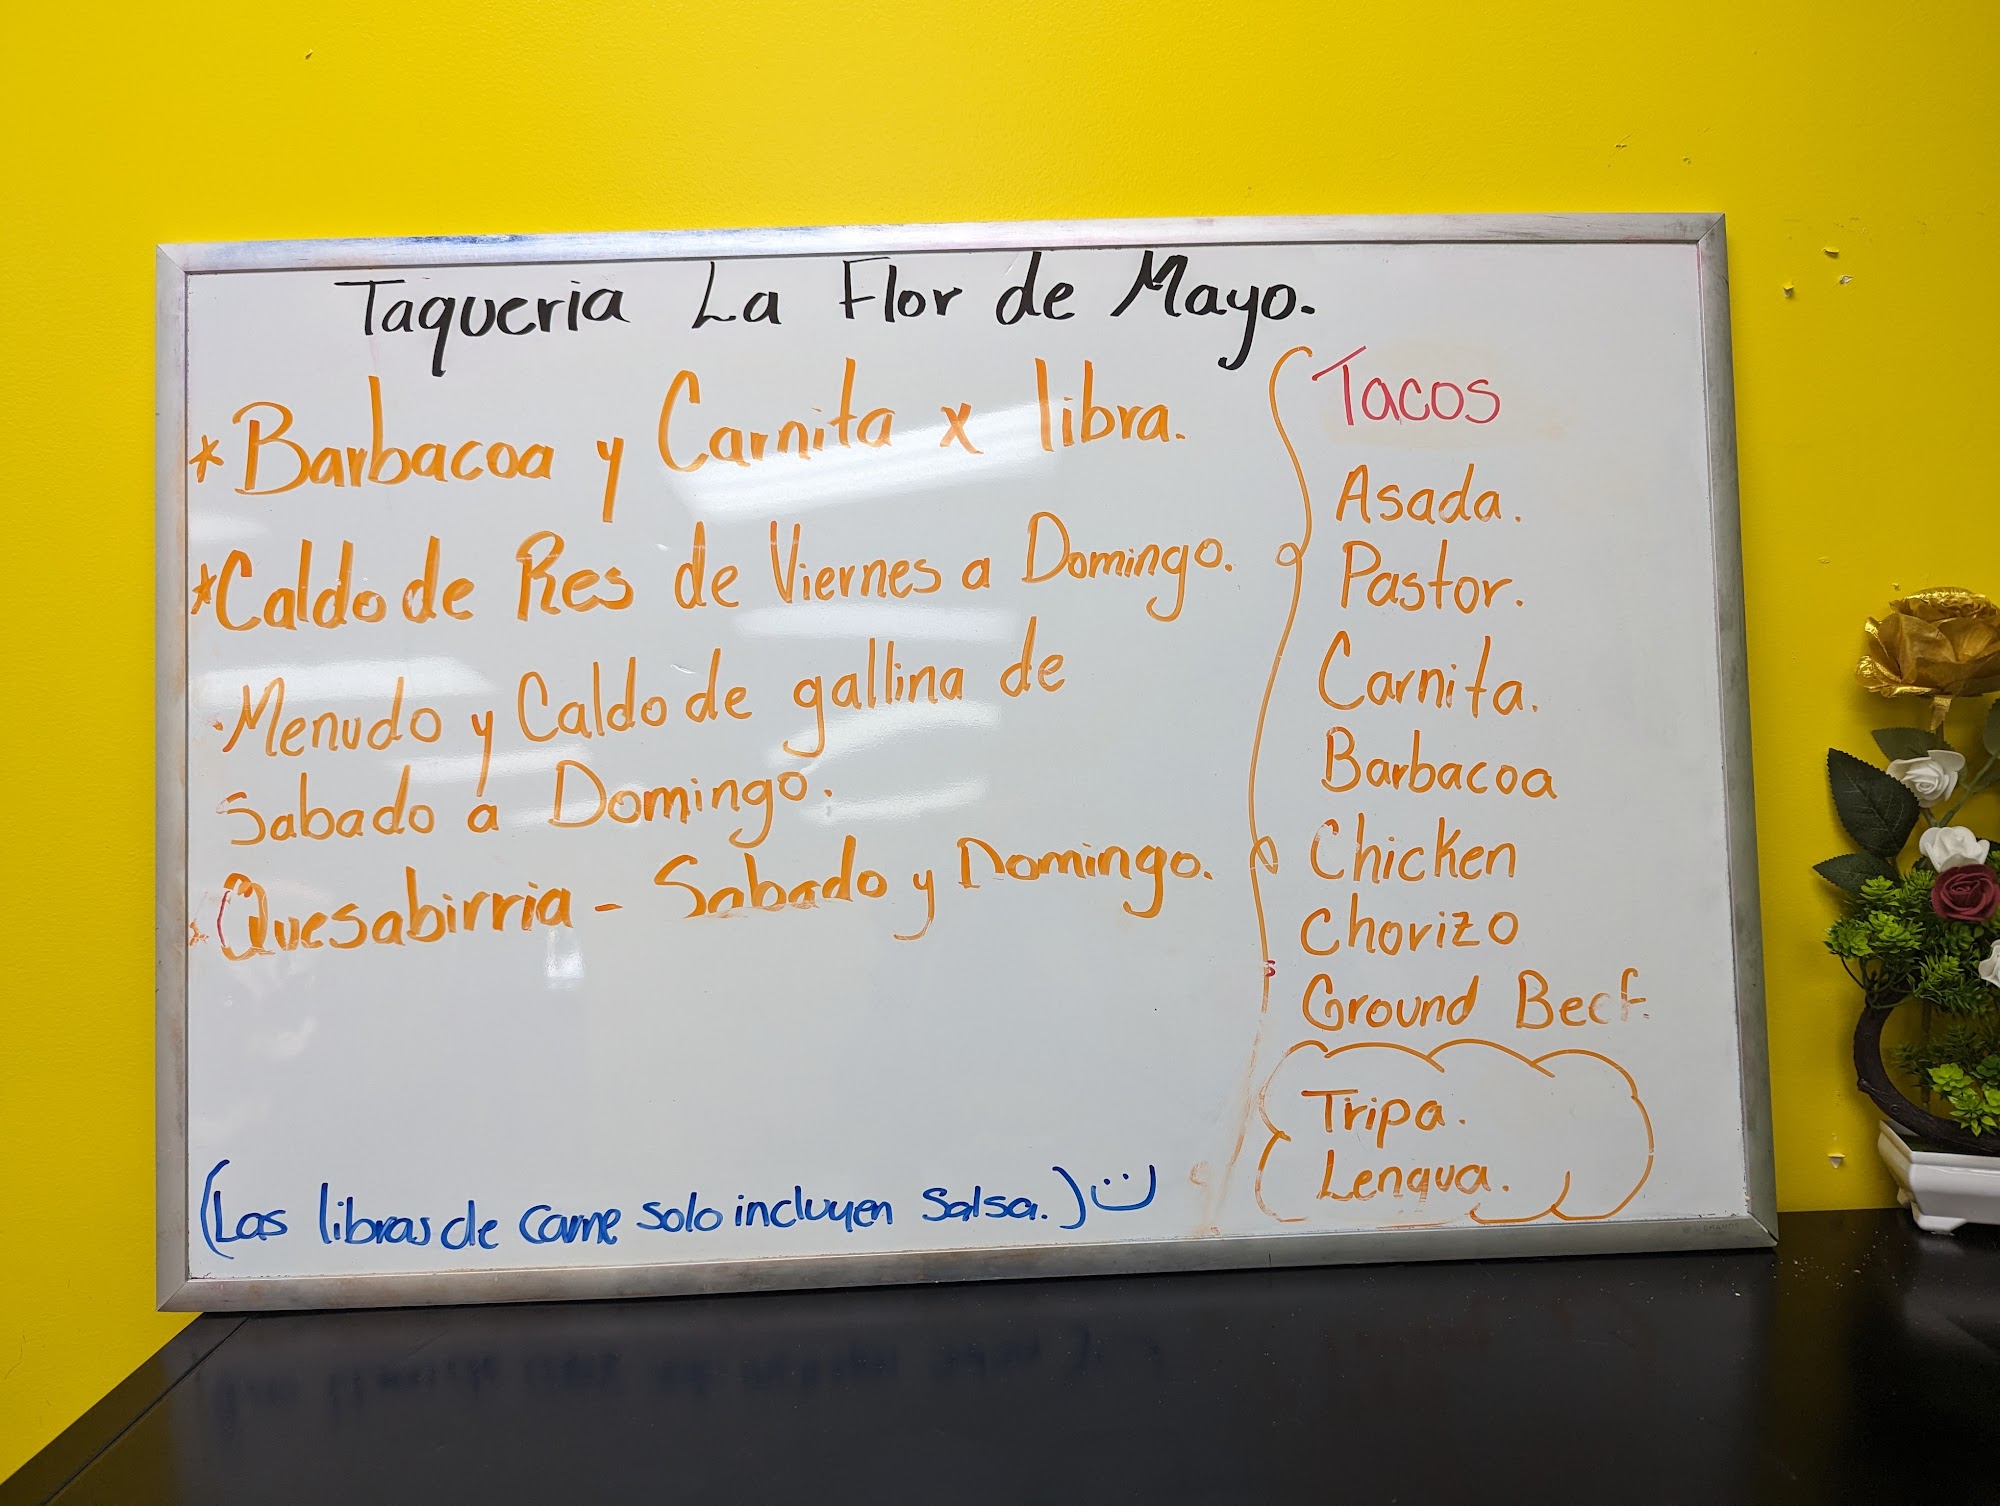 Taqueria La Flor de Mayo.
*Barbacoa y Carnita x libra.
*Caldo de Res de Viernes a Domingo.
·Menudo y Caldo de gallina de
Sabado a Domingo.
*Quesabirria - Sabado y Domingo.
(Las libras de carne solo incluyen Salsa.)
Tacos
Asada.
Pastor.
Carnita.
Barbacoa
Chicken
Chorizo
Ground Beef.
Tripa.
Lengua.